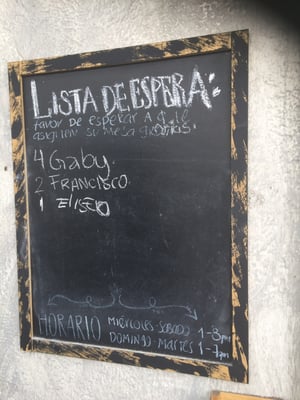 LISTA DE ESPERA:
favor de esperar A q' le
asignen su mesa gracias.
4 Gaby.
2 FRANCISCO
1 Eliseo
HORARIO MIÉRCOLES-SABADO 1-8pm
DOMINGO-MARTES 1-7pm